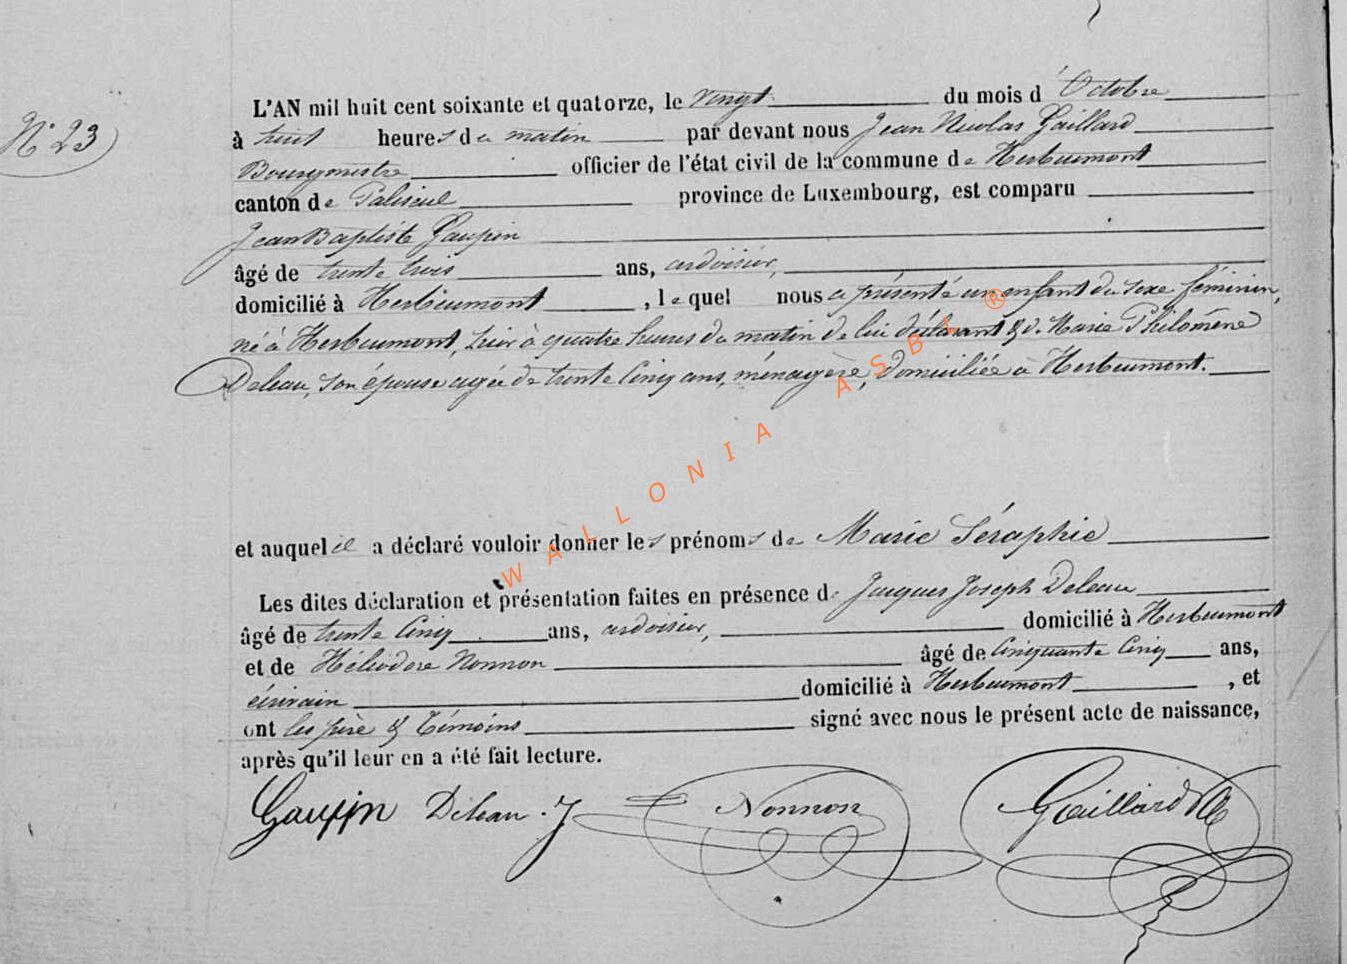 N° 23
L'AN mil huit cent soixante et quatorze, le vingt du mois d'Octobre
à huit heures du matin par devant nous Jean Nicolas Gaillard
Bourgmestre officier de l'état civil de la commune de Herbeumont
canton de Paliseul province de Luxembourg, est comparu
Jean Baptiste Gaupin
âgé de trente trois ans, ardoisier,
domicilié à Herbeumont, lequel nous a présenté un enfant du sexe féminin,
né à Herbeumont, hier à quatre heures du matin de lui déclarant & de Marie Philomène
Deleau, son épouse agée de trente cinq ans, ménagère, domiciliée à Herbeumont.
et auquel il a déclaré vouloir donner les prénoms de Marie Séraphie
Les dites déclaration et présentation faites en présence de Jacques Joseph Deleau
âgé de trente cinq ans, ardoisier, domicilié à Herbeumont
et de Héliodore Nonnon âgé de cinquante cinq ans,
écrivain domicilié à Herbeumont, et
ont les père & témoins signé avec nous le présent acte de naissance,
après qu'il leur en a été fait lecture.
Gaupin Deleau . J Nonnon Gaillard
WALLONIA ASBL ®